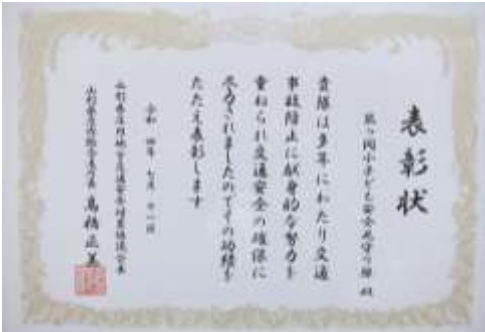 表彰状
鼠ヶ関小子ども安全見守り隊 殿
貴隊は多年にわたり交通
事故防止に献身的な努力を
重ねられ交通安全の確保に
尽力されましたのでその功績を
たたえ表彰します
令和 四年 七月 十一日
山形県庄内地方交通安全対策協議会長
山形県庄内総合支庁長 髙橋正美